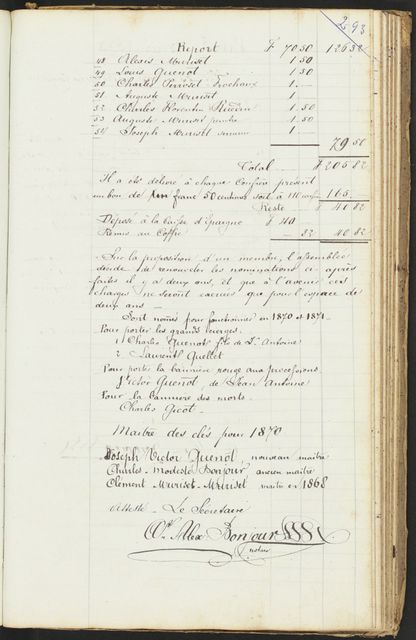 293
Report F 70.50 126.32
48 Alexis Muriset 1 50
49 Louis Quenot 1 50
50 Charles Perroset Frochaux 1.—
51 Auguste Muriset 1
52 Charles Florentin Ruedin 1.50
53 Auguste Muriset peintre 1.50
54 Joseph Muriset 1
79 50
Total F 205 82
Il a été délivré à chaque Confrère présent
un bon de Un franc 50 centimes soit à 110 conf. 165.—
Reste F 40 82
Déposé à la Caisse d'Epargne F 40
Remis au Coffre — 82 40 82
Sur la proposition d'un membre, l'assemblée
décide de renouveler les nominations ci-après
faites il y a deux ans, et que à l'avenir ces
charges ne seront exercées que pour l'espace de
deux ans —
Sont nommés pour fonctionner en 1870 et 1871
Pour porter les grands cierges.
1 Charles Quenot fils de St. Antoine
2 Laurent Quellet
Pour porter la bannière rouge aux processions
Victor Quenot, de Jean Antoine
Pour la bannière des morts.
Charles Gicot —
Maître des clés pour 1870
Joseph Victor Quenot, nouveau maître
Charles-Modeste Bonjour ancien maître
Clément Muriset-Muriset maître en 1868
Atteste Le Secrétaire
Ch. Alex Bonjour
notaire